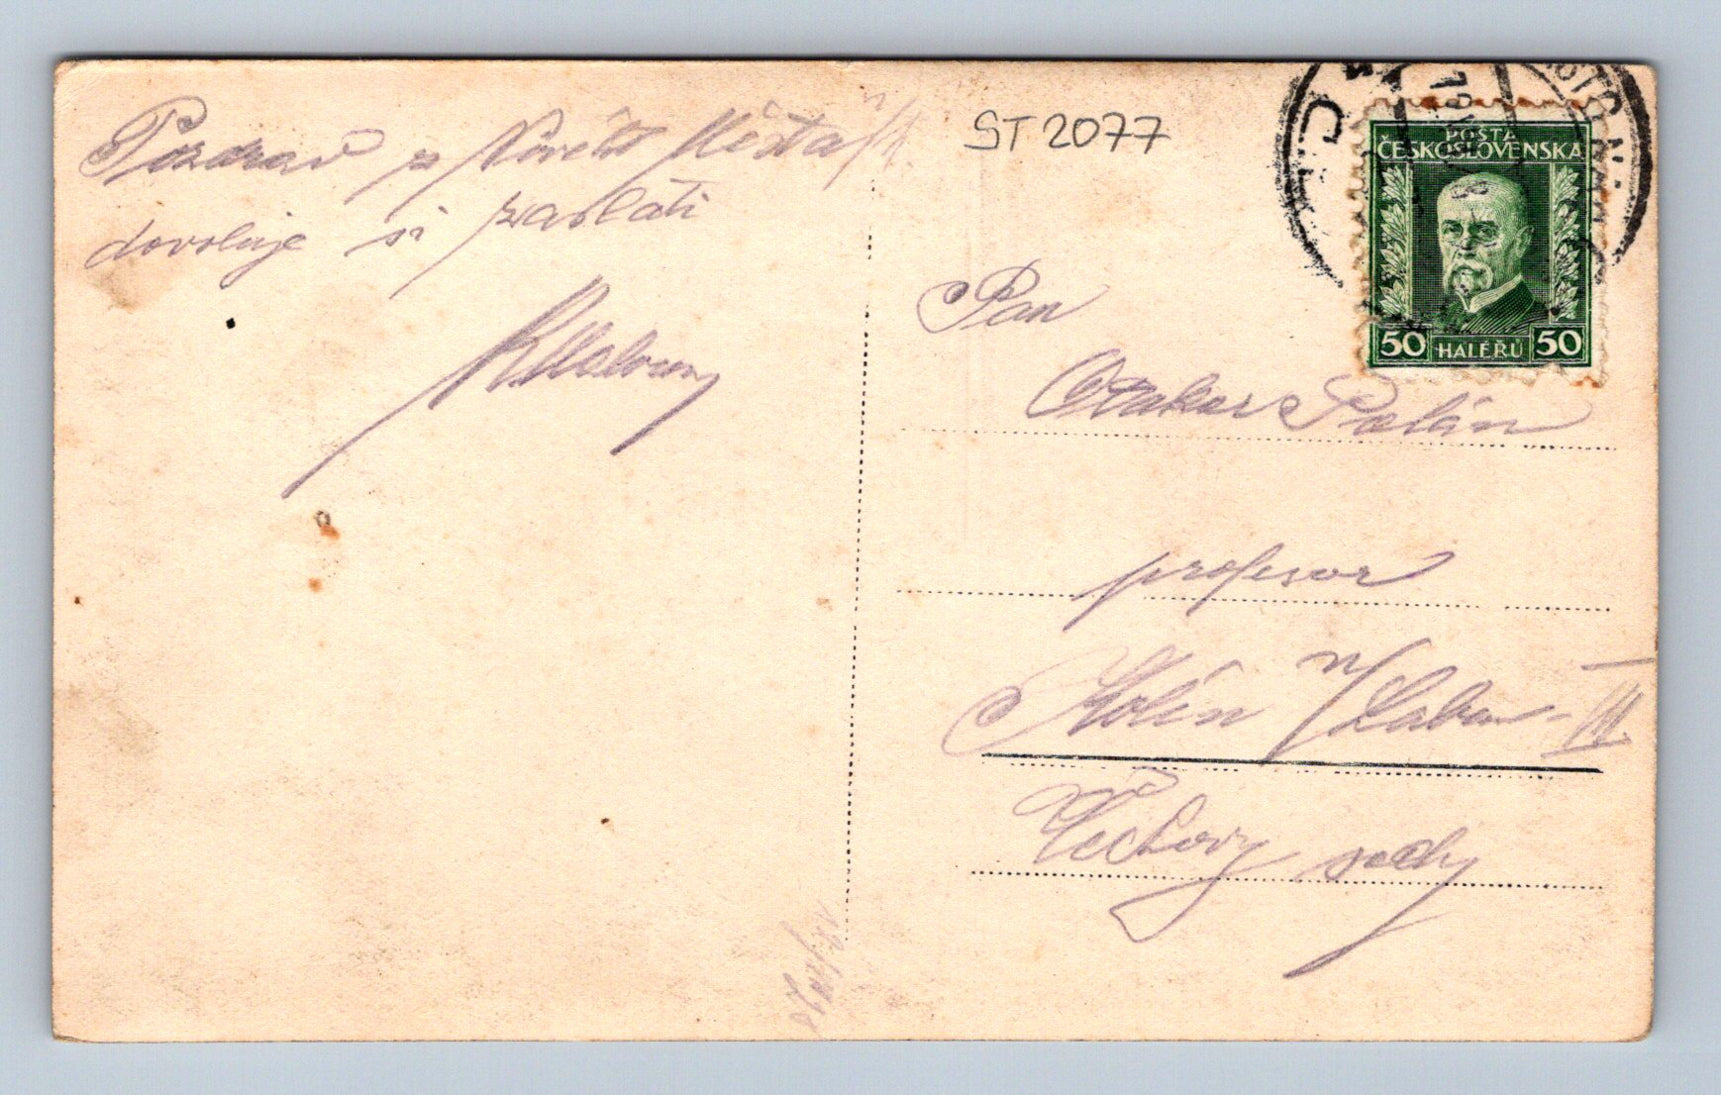 Pozdrav z Nového Města n/M.
dovoluje si zaslati
ST 2077
POŠTA
ČESKOSLOVENSKA
50 HALÉŘŮ 50
Pan
Otakar Polán
profesor
Kolín n/Labem - III.
Čechovy sady